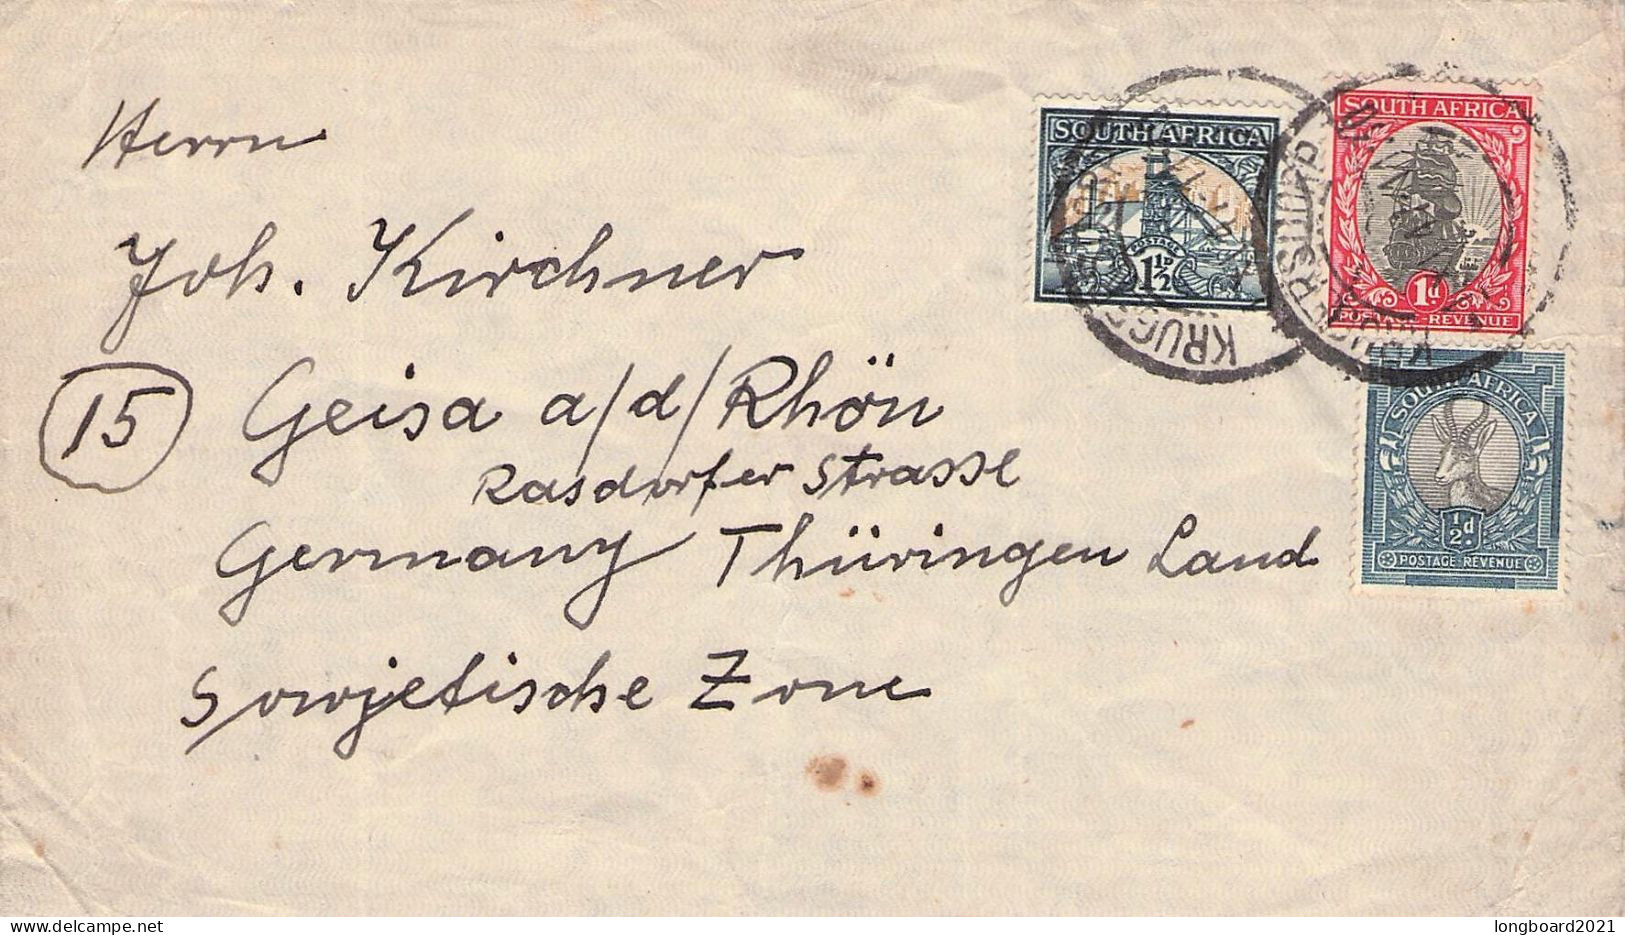 Herrn
Joh. Kirchner
15
Geisa a/d/Rhön
Rasdorfer Strasse
Germany Thüringen Land
Sowjetische Zone
SOUTH AFRICA
POSTAGE
1½D
SOUTH AFRICA
1d
POSTAGE-REVENUE
SOUTH AFRICA
½d
POSTAGE REVENUE
KRUGERSDORP
longboard2021